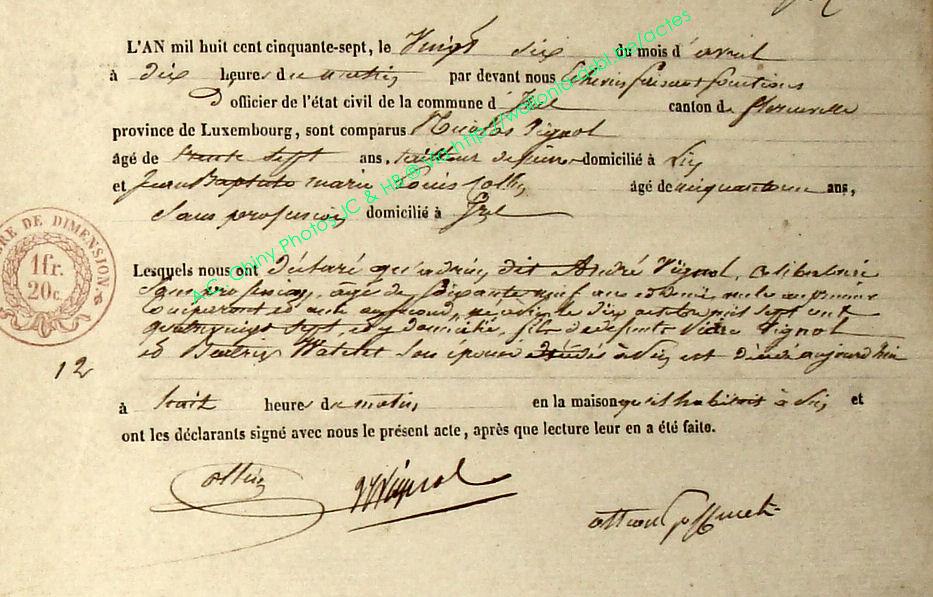 L'AN mil huit cent cinquante-sept, le Vingt six du mois d'avril
à dix heures du matin par devant nous Échevin faisant fonctions
D'officier de l'état civil de la commune d'Izel canton de Florenville
province de Luxembourg, sont comparus Nicolas Pignol
âgé de trente sept ans, tailleur de domicilié à
et Jean Baptiste Marie Louis Collin âgé de cinquante ans,
Sans profession domicilié à Izel
Lesquels nous ont déclaré qu'adrien dit André Pignol, célibataire
Sans profession, âgé de Soixante neuf ans et demi, oncle au premier
comparant et au second, né le dix octobre mil sept cent
quatrevingt Sept et y domicilié, fils de défunts Pignol
et Watelet Son épouse à est décédé aujourd'hui
12
à huit heures du matin en la maison qu'il habitait à et
ont les déclarants signé avec nous le présent acte, après que lecture leur en a été faite.
Collin N Pignol
RE DE DIMENSION
1fr.
20c.
A.C. Chiny Photos JC & HB @ via http://wallonia-asbl.be/actes